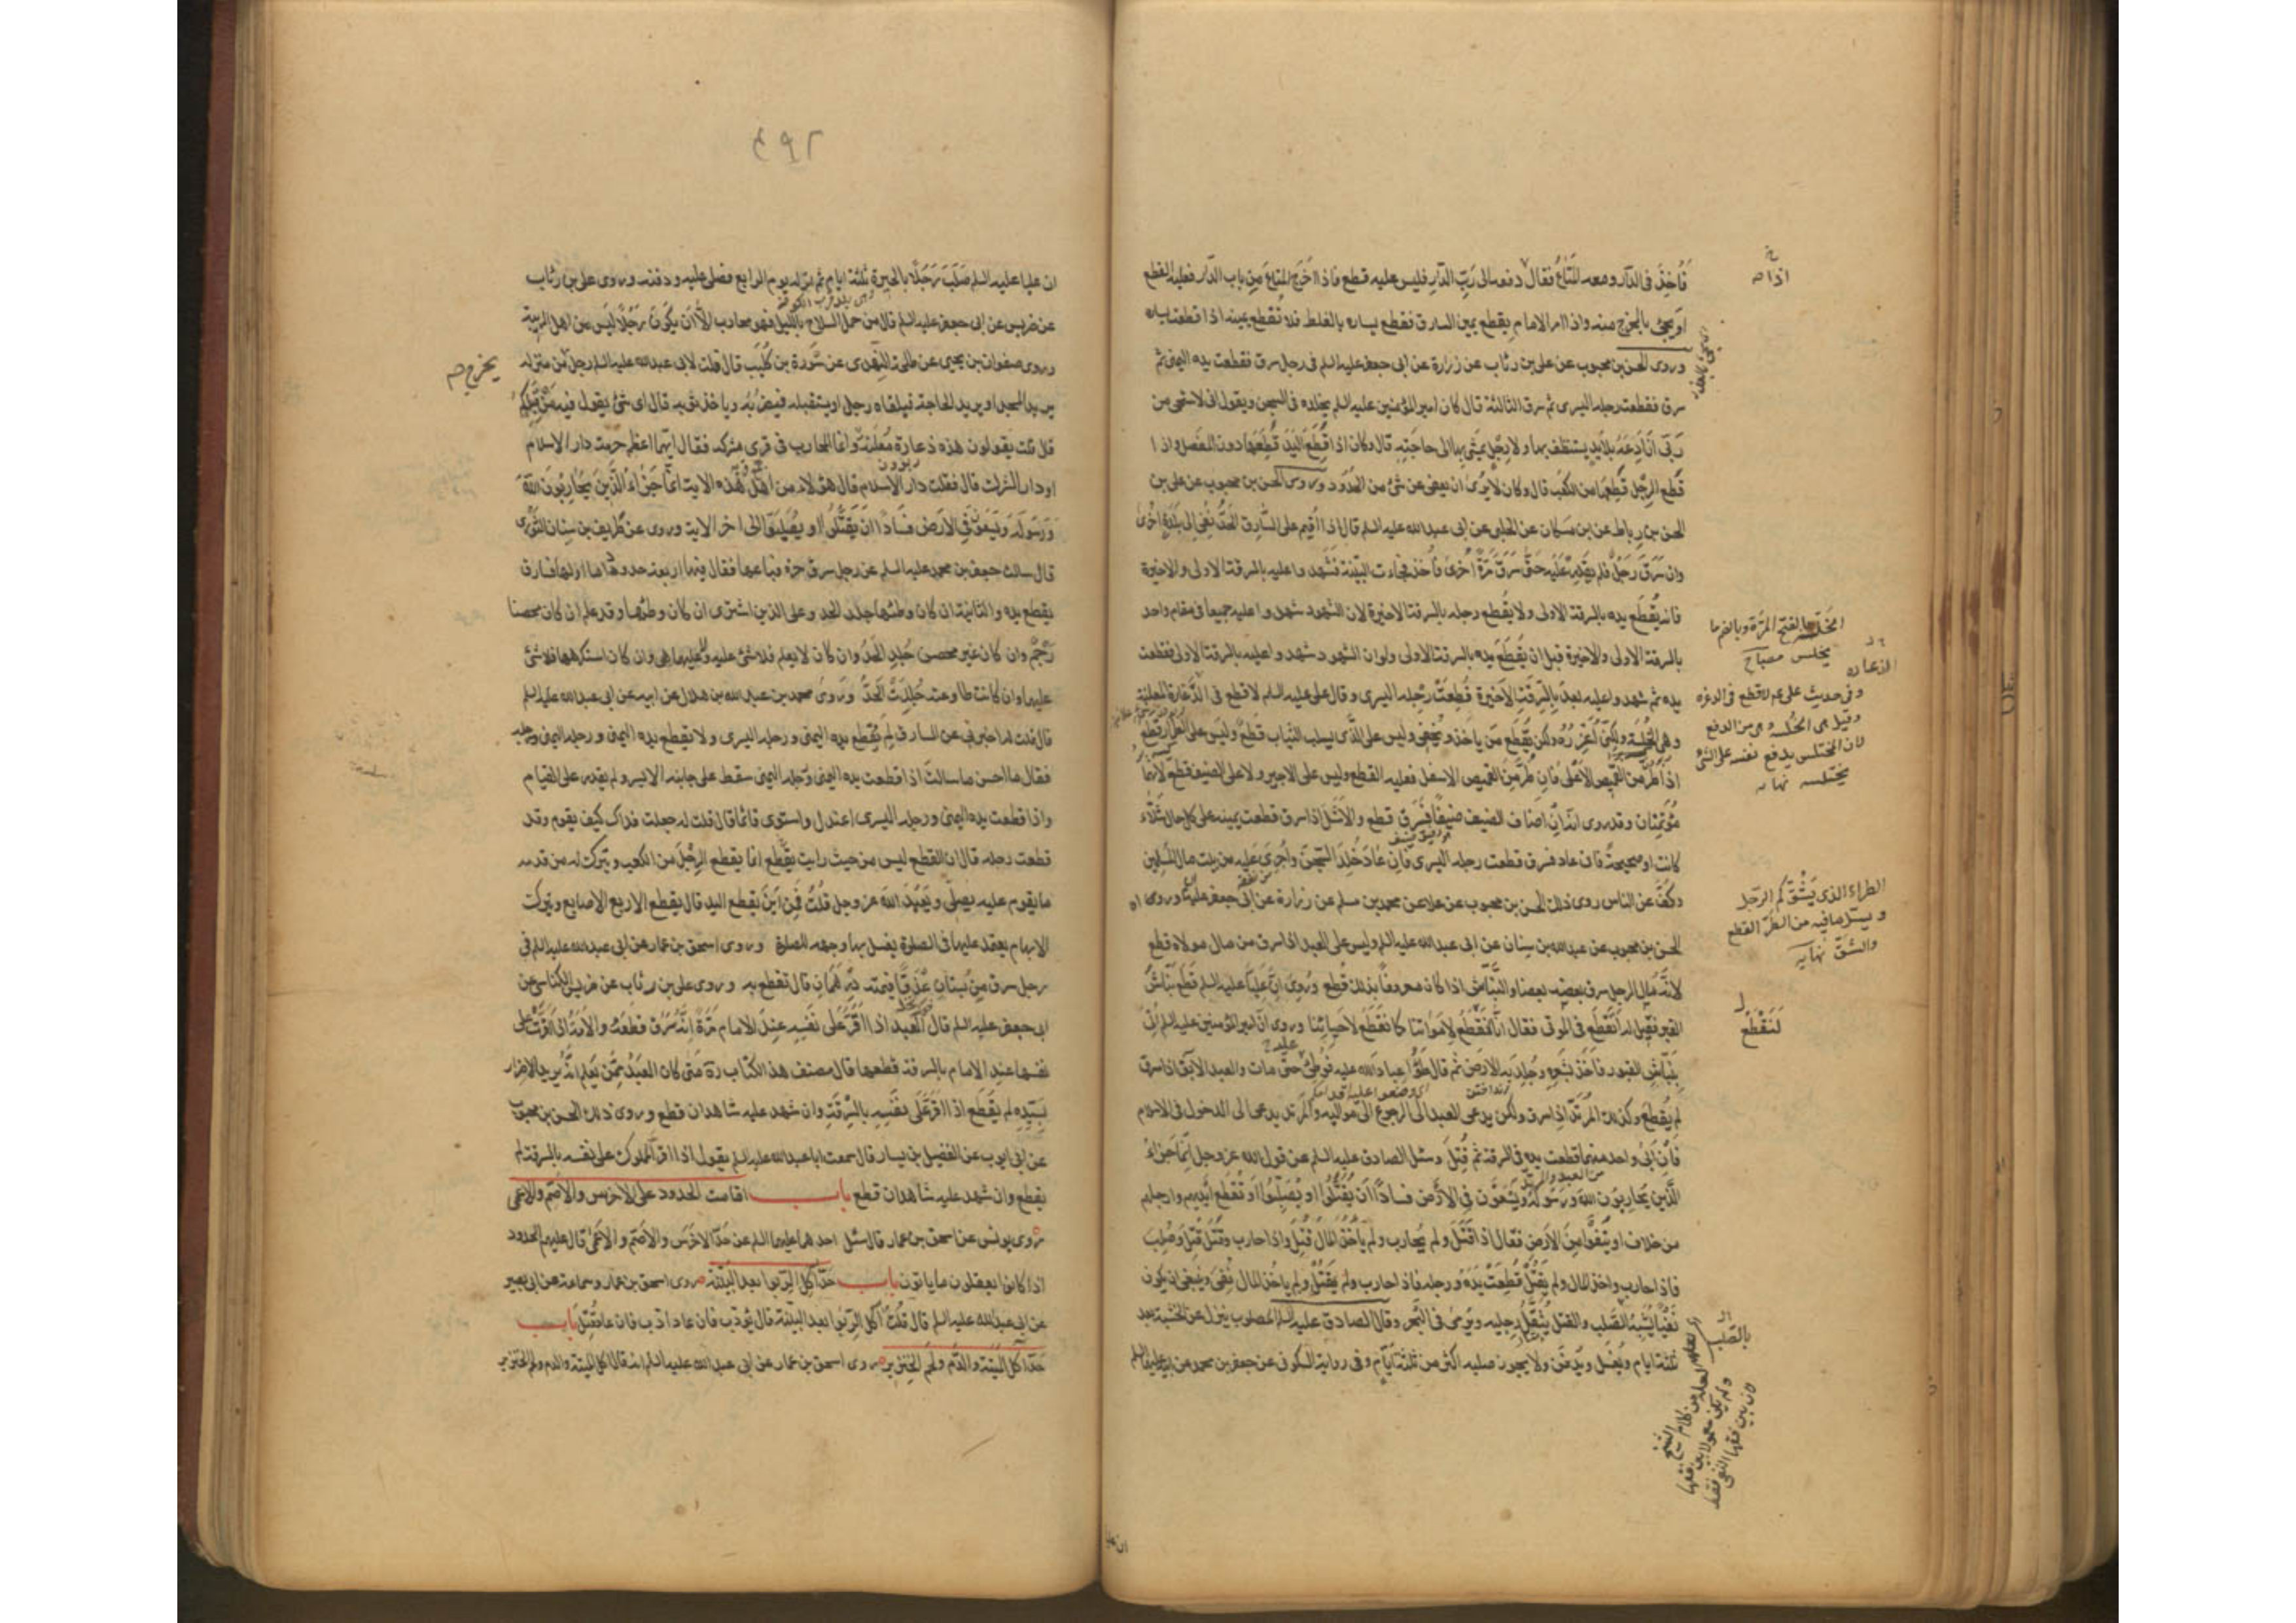 فأخذ في الدار ومعه المتاع فقال دفعه الى رب الدار فليس عليه قطع فاذا اخرج المتاع من باب الدار فعليه القطع
او يجئ بالمخرج منه واذا امر الامام بقطع يمين السارق فقطع يساره بالغلط فلا تقطع يمينه اذا قطعت يساره
وروى الحسن بن محبوب عن علي بن رئاب عن زرارة عن ابي جعفر عليه السلم في رجل سرق فقطعت يده اليمنى ثم
سرق فقطعت رجله اليسرى ثم سرق الثالثة قال كان امير المؤمنين عليه السلم يخلده في السجن ويقول اني لاستحيي من
ربي ان ادعه بلا يد يستنظف بها ولا رجل يمشي بها الى حاجته قال وكان اذا قطع اليد قطعها دون المفصل واذا
قطع الرجل قطعها من الكعب قال وكان لا يرى ان يعفى عن شئ من الحدود وروى الحسن بن محبوب عن علي بن
الحسن بن رباط عن ابن مسكان عن الحلبي عن ابي عبد الله عليه السلم قال اذا اقيم على السارق الحد نفي الى بلدة اخرى
وان سرق رجل فلم يقدر عليه حتى سرق مرة اخرى فأخذ فجاءت البينة فشهدوا عليه بالسرقة الاولى والاخيرة
فانه يقطع يده بالسرقة الاولى ولا يقطع رجله بالسرقة الاخيرة لان الشهود شهدوا عليه جميعا في مقام واحد
بالسرقة الاولى والاخيرة قبل ان يقطع يده بالسرقة الاولى ولو ان الشهود شهدوا عليه بالسرقة الاولى فقطعت
يده ثم شهدوا عليه بعد بالسرقة الاخيرة قطعت رجله اليسرى وقال علي عليه السلم لا قطع في الدغارة المعلنة
وهي الخلسة ولكني اعزره ولكن يقطع من ياخذ ويخفي وليس على الذي يسلب الثياب قطع وليس على الطرار قطع
اذا طر من القميص الاعلى فان طر من القميص الاسفل فعليه القطع وليس على الاجير ولا على الضيف قطع لانهما
مؤتمنان وقد روى انه ان اضاف الضيف ضيفا فسرق قطع والاشل اذا سرق قطعت يمينه على كل حال شلاء
كانت او صحيحة فان عاد فسرق قطعت رجله اليسرى فان عاد خلد السجن واجرى عليه من بيت مال المسلمين
وكف عن الناس روى ذلك الحسن بن محبوب عن علا عن محمد بن مسلم عن زرارة عن ابي جعفر عليه وروى
الحسن بن محبوب عن عبد الله بن سنان عن ابي عبد الله عليه السلم وليس على العبد اذا سرق من مال مولاه قطع
لانه مال الرجل سرق بعضه بعضا والنباش اذا كان معروفا بذلك قطع وروى ان عليا عليه السلم قطع نباش
القبر فقيل له أتقطع في الموتى فقال انا لنقطع لامواتنا كما نقطع لاحيائنا وروى ان امير المؤمنين عليه السلم اتي
بنباش القبور فاخذ بشعره وجلد به الارض ثم قال طؤا عباد الله عليه فوطئ حتى مات والعبد الآبق اذا سرق
لم يقطع وكذلك المرتد اذا سرق ولكن يدعى العبد الى الرجوع الى مواليه والمرتد يدعى الى الدخول في الاسلام
فان ابى واحد منهما قطعت يده في السرقة ثم قتل وسئل الصادق عليه السلم عن قول الله عز وجل انما جزاء
الذين يحاربون الله ورسوله ويسعون في الارض فسادا ان يقتلوا او يصلبوا او تقطع ايديهم وارجلهم
من خلاف او ينفوا من الارض فقال اذا قتل ولم يحارب ولم ياخذ المال قتل واذا حارب وقتل قتل وصلب
فاذا حارب واخذ المال ولم يقتل قطعت يده ورجله فاذا حارب ولم يقتل ولم ياخذ المال نفي وينبغي ان يكون
نفيا يشبه الصلب والقتل يثقل رجليه ويرمى في البحر وقال الصادق عليه السلم المصلوب ينزل عن الخشبة بعد
ثلثة ايام ويغسل ويدفن ولا يجوز صلبه اكثر من ثلثة ايام وفي رواية السكوني عن جعفر بن محمد عن ابيه عليهما السلم
الخلسة بالفتح المرة وبالضم ما
يختلس مصباح
وفي حديث علي عم لا قطع في الدغرة
وقيل هي الخلسة وهي من الدفع
لان المختلس يدفع نفسه على الشئ
يختلسه نهاية
الطرار الذي يشق كم الرجل
ويستل ما فيه من الطر القطع
والشق نهاية
لنقطع
بالصلب
٢٩٢
ان عليا عليه السلم صلب رجلا بالحيرة ثلثة ايام ثم انزله يوم الرابع فصلى عليه ودفنه وروى علي بن رئاب
عن ضريس عن ابي جعفر عليه السلم قال من حمل السلاح بالليل فهو محارب الا ان يكون رجلا ليس من اهل الريبة
وروى صفوان بن يحيى عن طلحة النهدي عن سورة بن كليب قال قلت لابي عبد الله عليه السلم رجل من منزله
يريد المسجد او يريد لحاجة فيلقاه رجل او يستقبله فيضربه وياخذ ثوبه قال اى شئ يقول فيه من قبلكم
قال قلت يقولون هذه ذعارة معلنة وانما المحارب في قرى مشركه فقال ايهما اعظم حرمة دار الاسلام
او دار الشرك قال فقلت دار الاسلام قال هؤلاء من اهل هذه الاية انما جزاء الذين يحاربون الله
ورسوله ويسعون في الارض فسادا ان يقتلوا او يصلبوا الى اخر الاية وروى عن طريف بن سنان الثوري
قال سالت جعفر بن محمد عليه السلم عن رجل سرق حرة فباعها فقال فيها اربعة حدود اما اولها فسارق
يقطع يده والثانية ان كان وطئها جلد الحد وعلى الذي اشترى ان كان وطئها وقد علم ان كان محصنا
رجم وان كان غير محصن جلد الحد وان كان لا يعلم فلا شئ عليه وعليها هي وان كان استكرهها فلا شئ
عليها وان كانت طاوعته جلدت الحد وروى محمد بن عبد الله بن هلال عن ابيه عن ابي عبد الله عليه السلم
قال قلت له اخبرني عن السارق لم تقطع يده اليمنى ورجله اليسرى ولا يقطع يده اليمنى ورجله اليمنى
فقال ما احسن ما سالت اذا قطعت يده اليمنى ورجله اليمنى سقط على جانبه الايسر ولم يقدر على القيام
واذا قطعت يده اليمنى ورجله اليسرى اعتدل واستوى قائما قال قلت له جعلت فداك كيف يقوم وقد
قطعت رجله قال ان القطع ليس من حيث رايت يقطع انما يقطع الرجل من الكعب ويترك له من قدمه
ما يقوم عليه يصلي ويعبد الله عز وجل قلت فمن اين يقطع اليد قال يقطع الاربع الاصابع ويترك
الابهام يعتمد عليها في الصلوة يغسل بها وجهه للصلوة وروى اسحق بن عمار عن ابي عبد الله عليه السلم في
رجل سرق من بستان عذقا قيمته درهمان قال تقطع به وروى علي بن رئاب عن ضريس الكناسي عن
ابي جعفر عليه السلم قال العبد اذا اقر على نفسه عند الامام مرة انه سرق قطعه والامة اذا اقرت على
نفسها عند الامام بالسرقة قطعها قال مصنف هذا الكتاب ره متى كان العبد ممن يعلم انه يريد الاضرار
بسيده لم يقطع اذا اقر على نفسه بالسرقة وان شهد عليه شاهدان قطع وروى ذلك الحسن بن محبوب
عن ابي ايوب عن الفضيل بن يسار قال سمعت ابا عبد الله عليه السلم يقول اذا اقر المملوك على نفسه بالسرقة لم
يقطع وان شهد عليه شاهدان قطع باب اقامة الحدود على الاخرس والاصم والاعمى
روى يونس عن اسحق بن عمار قال سئل احدهما عليهما السلم عن حد الاخرس والاصم والاعمى قال عليهم الحدود
اذا كانوا يعقلون ما ياتون باب حد اكل الربوا بعد البينة روى اسحق بن عمار وسماعة عن ابي بصير
عن ابي عبد الله عليه السلم قال قلت اكل الربوا بعد البينة قال يؤدب فان عاد ادب فان عاد قتل باب
حد اكل الميتة والدم ولحم الخنزير روى اسحق بن عمار عن ابي عبد الله عليه السلم انه قال اكل الميتة والدم ولحم الخنزير